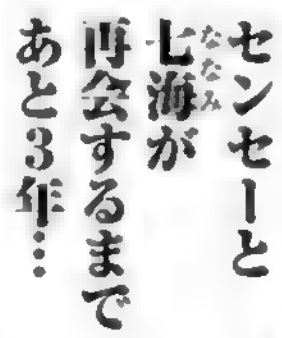 センセーと
七海が
ななみ
再会するまで
あと3年…